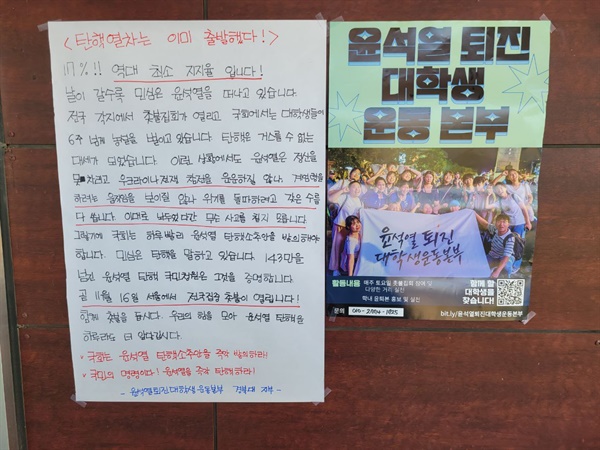 <탄핵열차는 이미 출발했다!>
17%!! 역대 최소 지지율 입니다!
날이 갈수록 민심은 윤석열을 떠나고 있습니다.
전국 각지에서 촛불집회가 열리고 국회에서는 대학생들이
6주 넘게 농성을 벌이고 있습니다. 탄핵은 거스를 수 없는
대세가 되었습니다. 이런 상황에서도 윤석열은 정신을
못 차리고 우크라이나 전쟁 참전을 운운하질 않나, 계엄령을
하려는 움직임을 보이질 않나 위기를 돌파하려고 갖은 수를
다 씁니다. 이대로 놔두었다간 무슨 사고를 칠지 모릅니다.
그렇기에 국회는 하루빨리 윤석열 탄핵소추안을 발의해야
합니다. 민심은 탄핵을 말하고 있습니다. 143만을
넘긴 윤석열 탄핵 국민청원은 그것을 증명합니다.
곧 11월 16일 서울에서 전국집중 촛불이 열립니다!
함께 촛불을 듭시다. 우리의 힘을 모아 윤석열 탄핵을
하루라도 더 앞당깁시다.
국회는 윤석열 탄핵소추안을 즉각 발의하라!
국민의 명령이다! 윤석열을 즉각 탄핵하라!
- 윤석열퇴진대학생운동본부 경북대 지부 -
윤석열 퇴진
대학생
운동 본부
윤석열 퇴진
대학생운동본부
활동내용 매주 토요일 촛불집회 참여 및
다양한 거리 실천
학내 윤퇴본 홍보 및 실천
문의
함께 할
대학생을
찾습니다!
bit.ly/윤석열퇴진대학생운동본부